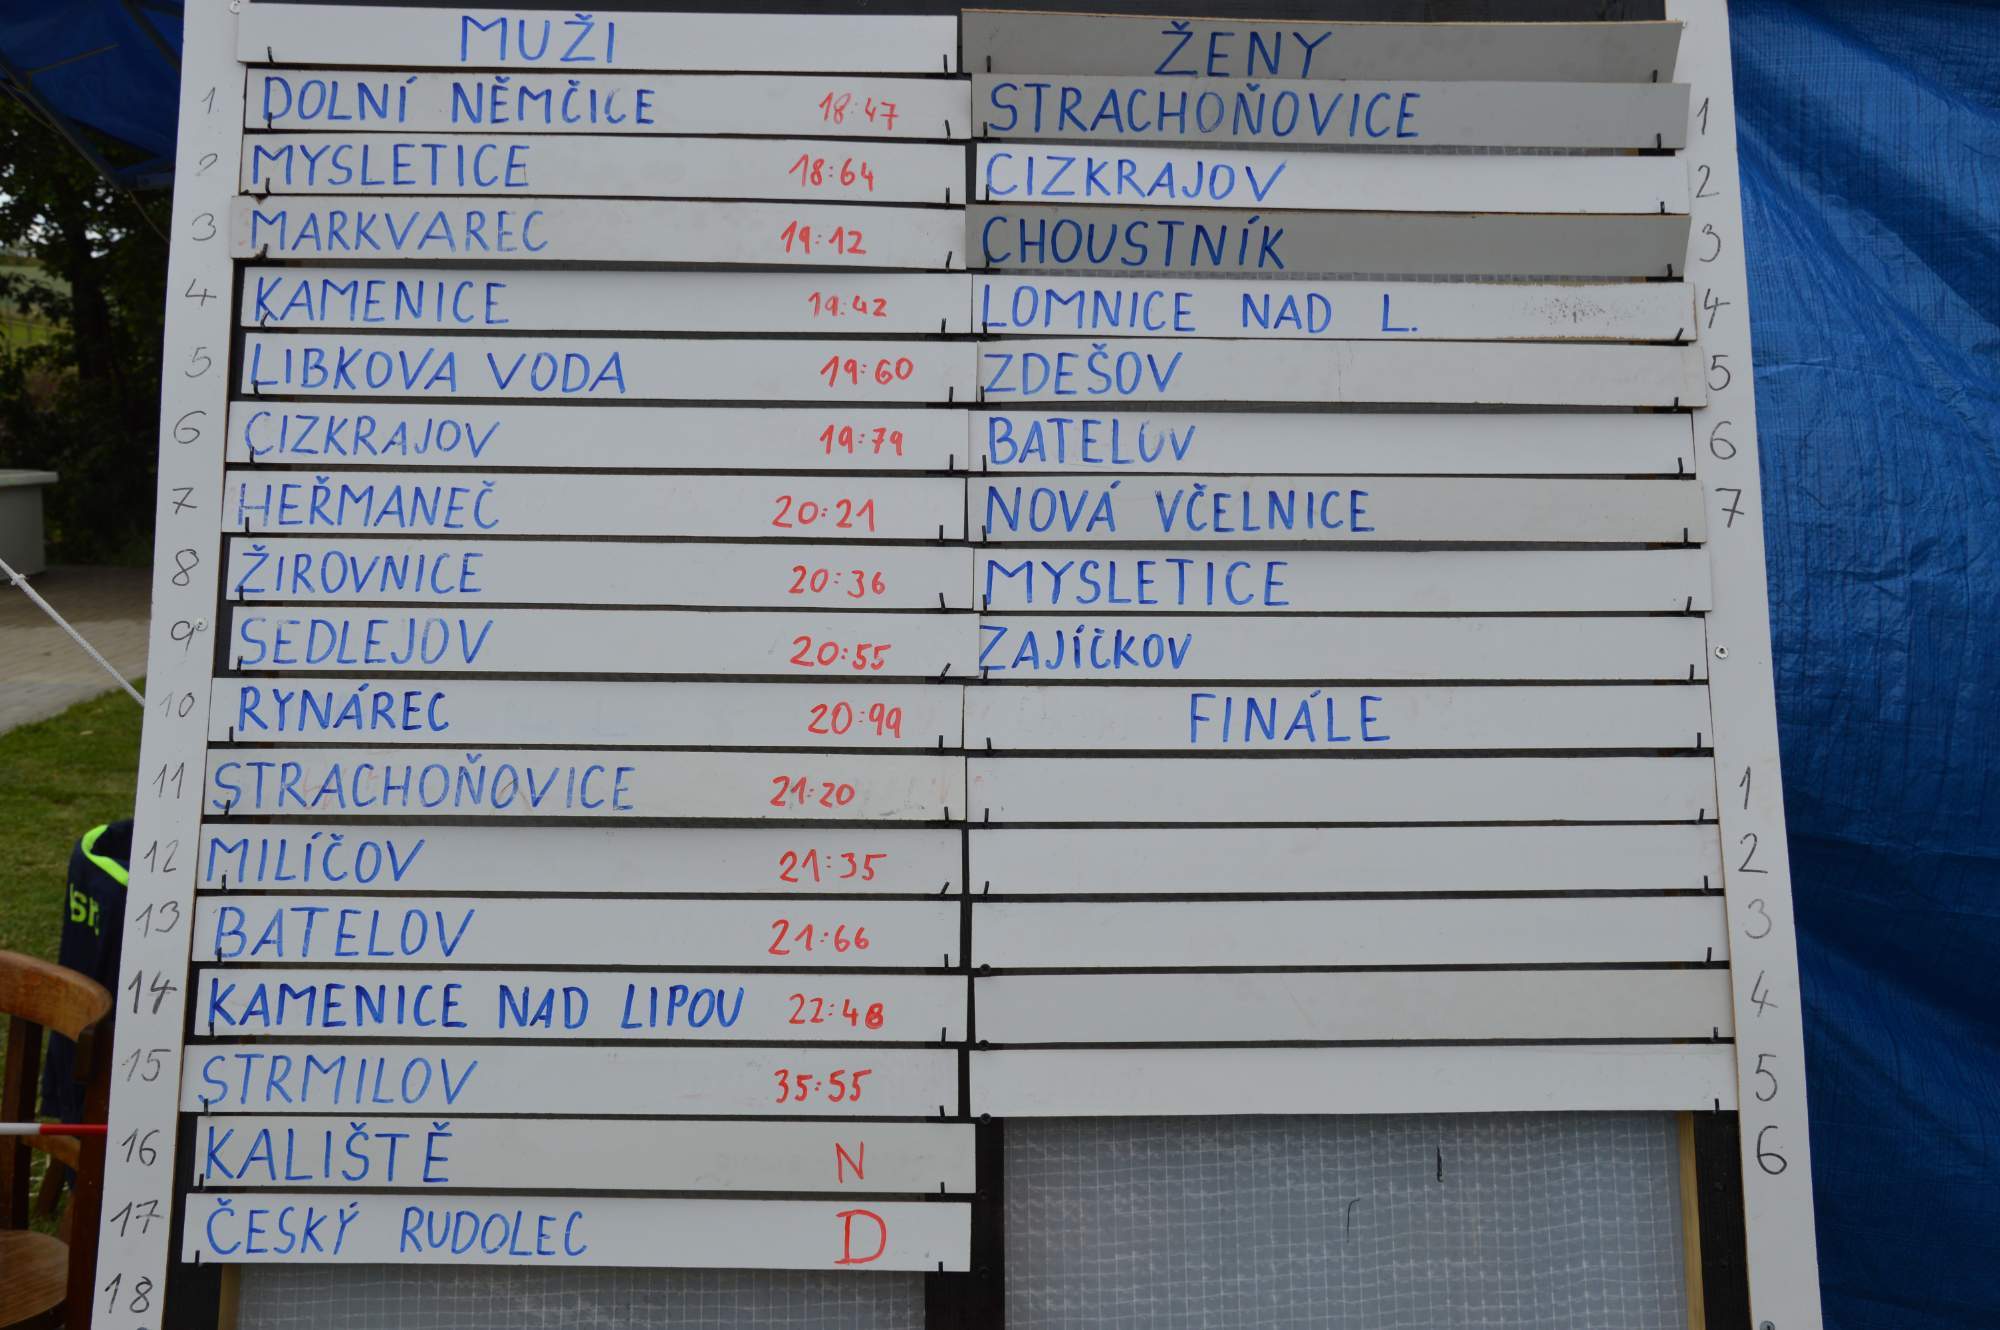 MUŽI
1 DOLNÍ NĚMČICE 18:47
2 MYSLETICE 18:64
3 MARKVAREC 19:12
4 KAMENICE 19:42
5 LIBKOVA VODA 19:60
6 CIZKRAJOV 19:79
7 HEŘMANEČ 20:21
8 ŽIROVNICE 20:36
9 SEDLEJOV 20:55
10 RYNÁREC 20:99
11 STRACHOŇOVICE 21:20
12 MILÍČOV 21:35
13 BATELOV 21:66
14 KAMENICE NAD LIPOU 22:48
15 STRMILOV 35:55
16 KALIŠTĚ N
17 ČESKÝ RUDOLEC D
18
ŽENY
STRACHOŇOVICE 1
CIZKRAJOV 2
CHOUSTNÍK 3
LOMNICE NAD L. 4
ZDEŠOV 5
BATELOV 6
NOVÁ VČELNICE 7
MYSLETICE
ZAJÍČKOV
FINÁLE
1
2
3
4
5
6